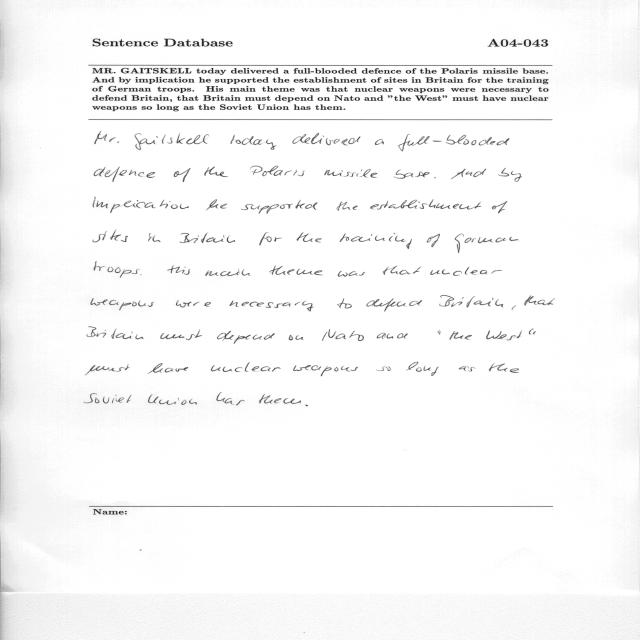 Sentence Database A04-043
MR. GAITSKELL today delivered a full-blooded defence of the Polaris missile base.
And by implication he supported the establishment of sites in Britain for the training
of German troops. His main theme was that nuclear weapons were necessary to
defend Britain, that Britain must depend on Nato and "the West" must have nuclear
weapons so long as the Soviet Union has them.
Mr. Gaitskell today delivered a full-blooded
defence of the Polaris missile base. And by
implication he supported the establishment of
sites in Britain for the training of German
troops. His main theme was that nuclear
weapons were necessary to defend Britain, that
Britain must depend on Nato and "the West"
must have nuclear weapons so long as the
Soviet Union has them.
Name: